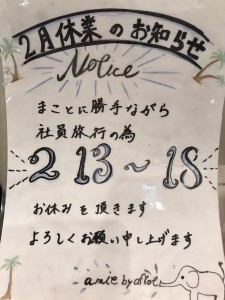 2月休業のお知らせ
Notice
まことに勝手ながら
社員旅行の為
2 13～18
お休みを頂きます
よろしくお願い申し上げます
amie by